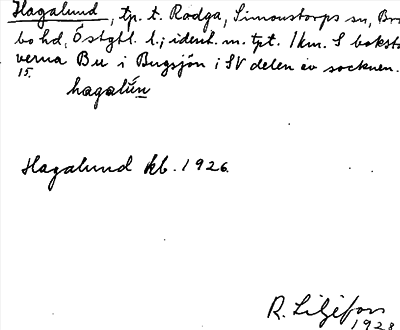 Hagalund, tp. t. Rodga, Simonstorps sn, Bro
bo hd, Östgtl. l.; ident. m. tpt. 1 km. S bokstä
verna Bu i Bugsjön i SV delen av socknen.
15.
hagalún
Hagalund kb. 1926.
R. Liljefors
1928